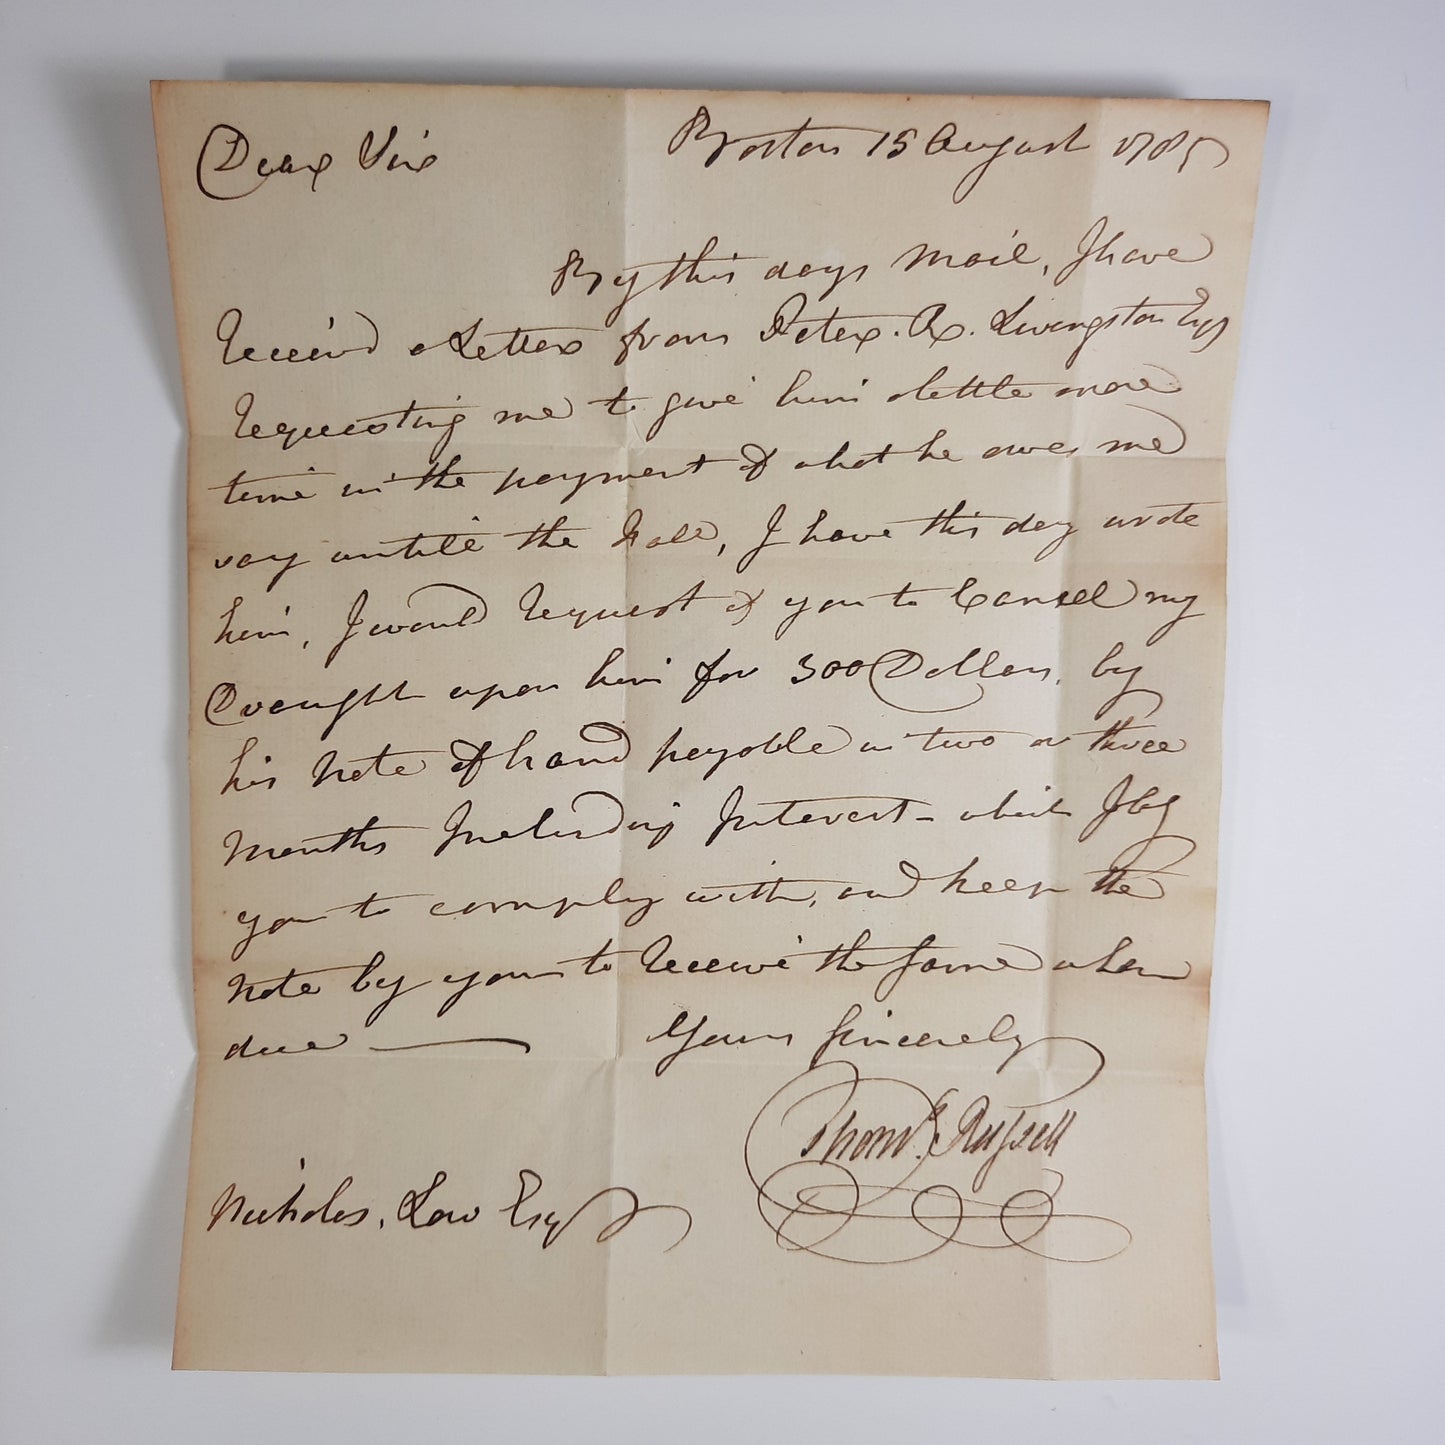 Dear Sir Boston 15 August 1785
By this days Mail, I have
Received a Letter from Peter. R. Livingston Esqr
Requesting me to give him a little more
time in the payment of what he owes me
say untill the Fall, I have this day wrote
him, I would Request of you to Cansel my
Draught upon him for 300 Dollars, by
his Note of hand payable in two or three
Months Including Interest - which I beg
you to comply with, and keep the
Note by you to Receive the same when
due — Yours Sincerely
Thoms. Russell
Nicholas. Low Esqr